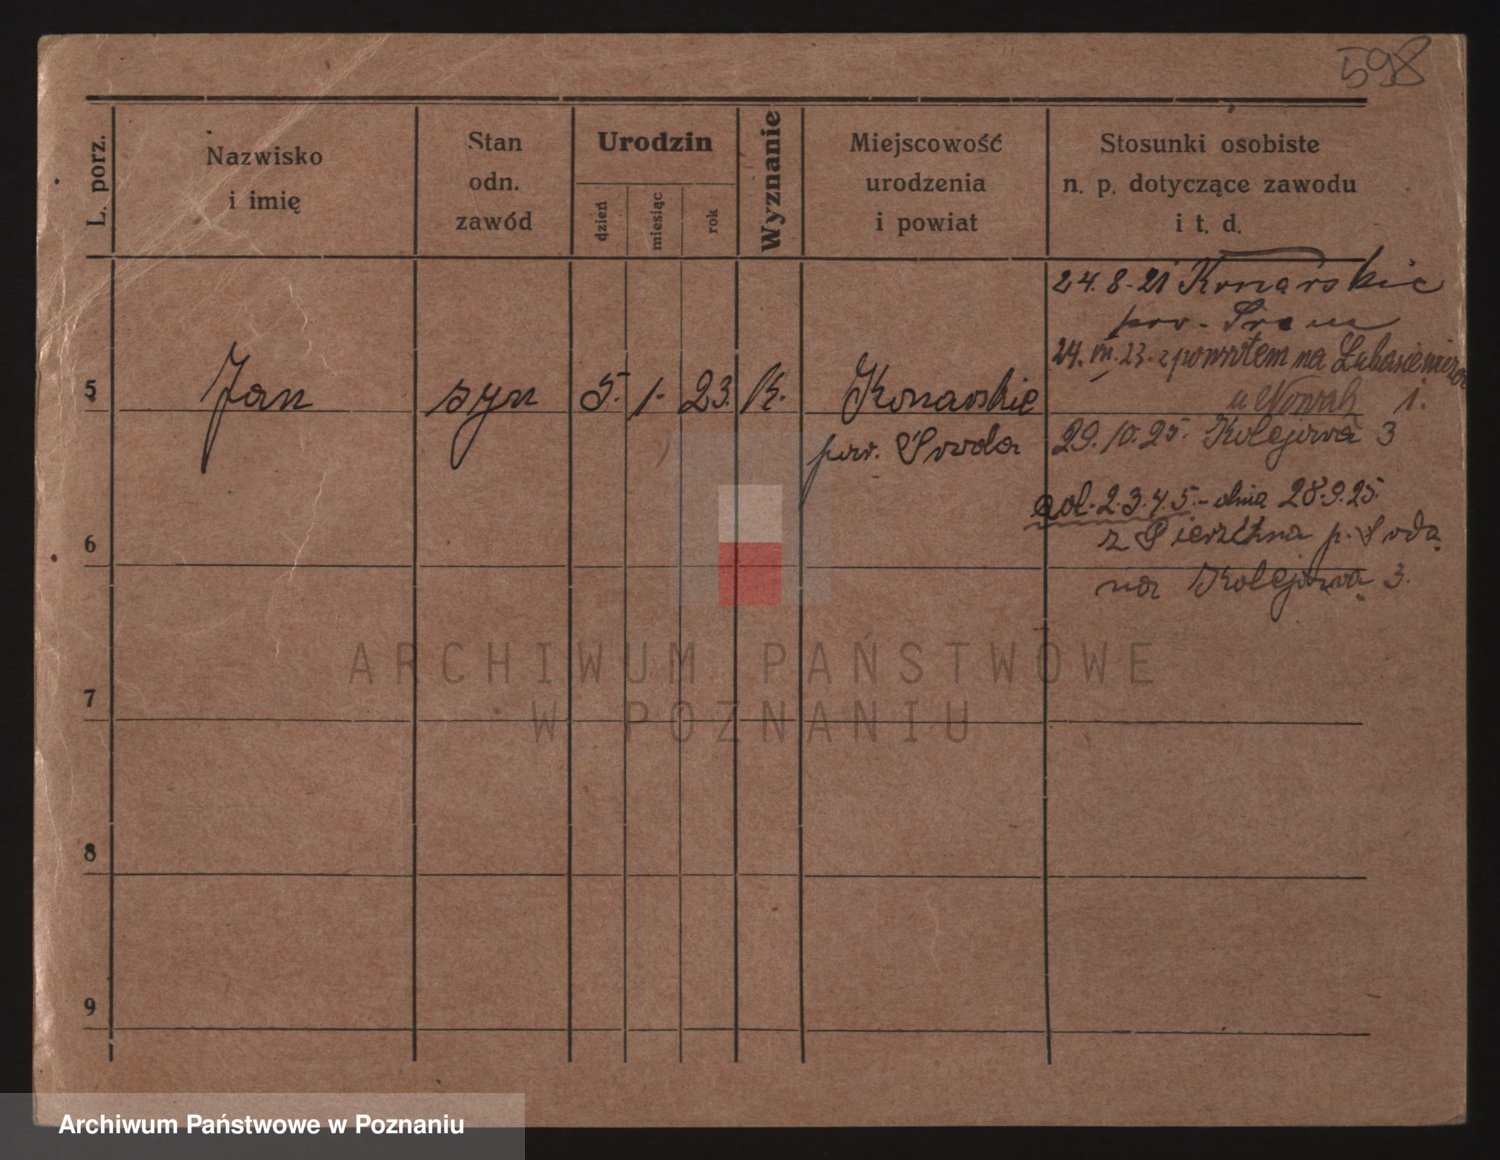 598
L. porz.
Nazwisko
i imię
Stan
odn.
zawód
Urodzin
dzień
miesiąc
rok
Wyznanie
Miejscowość
urodzenia
i powiat
Stosunki osobiste
n. p. dotyczące zawodu
i t. d.
24.8.21 Konarskie
pow. Śrem
24. VII. 23. z powrotem na
u Nowak 1.
5 Jan syn 5. 1. 23. K. Konarskie
pow. Środa
29.10.25. Kolejowa 3
2.3.4.5. - dnia 28.9.25.
z Pierzchna p. Środa
na Kolejowa 3.
6
7
8
9
ARCHIWUM PAŃSTWOWE
W POZNANIU
Archiwum Państwowe w Poznaniu